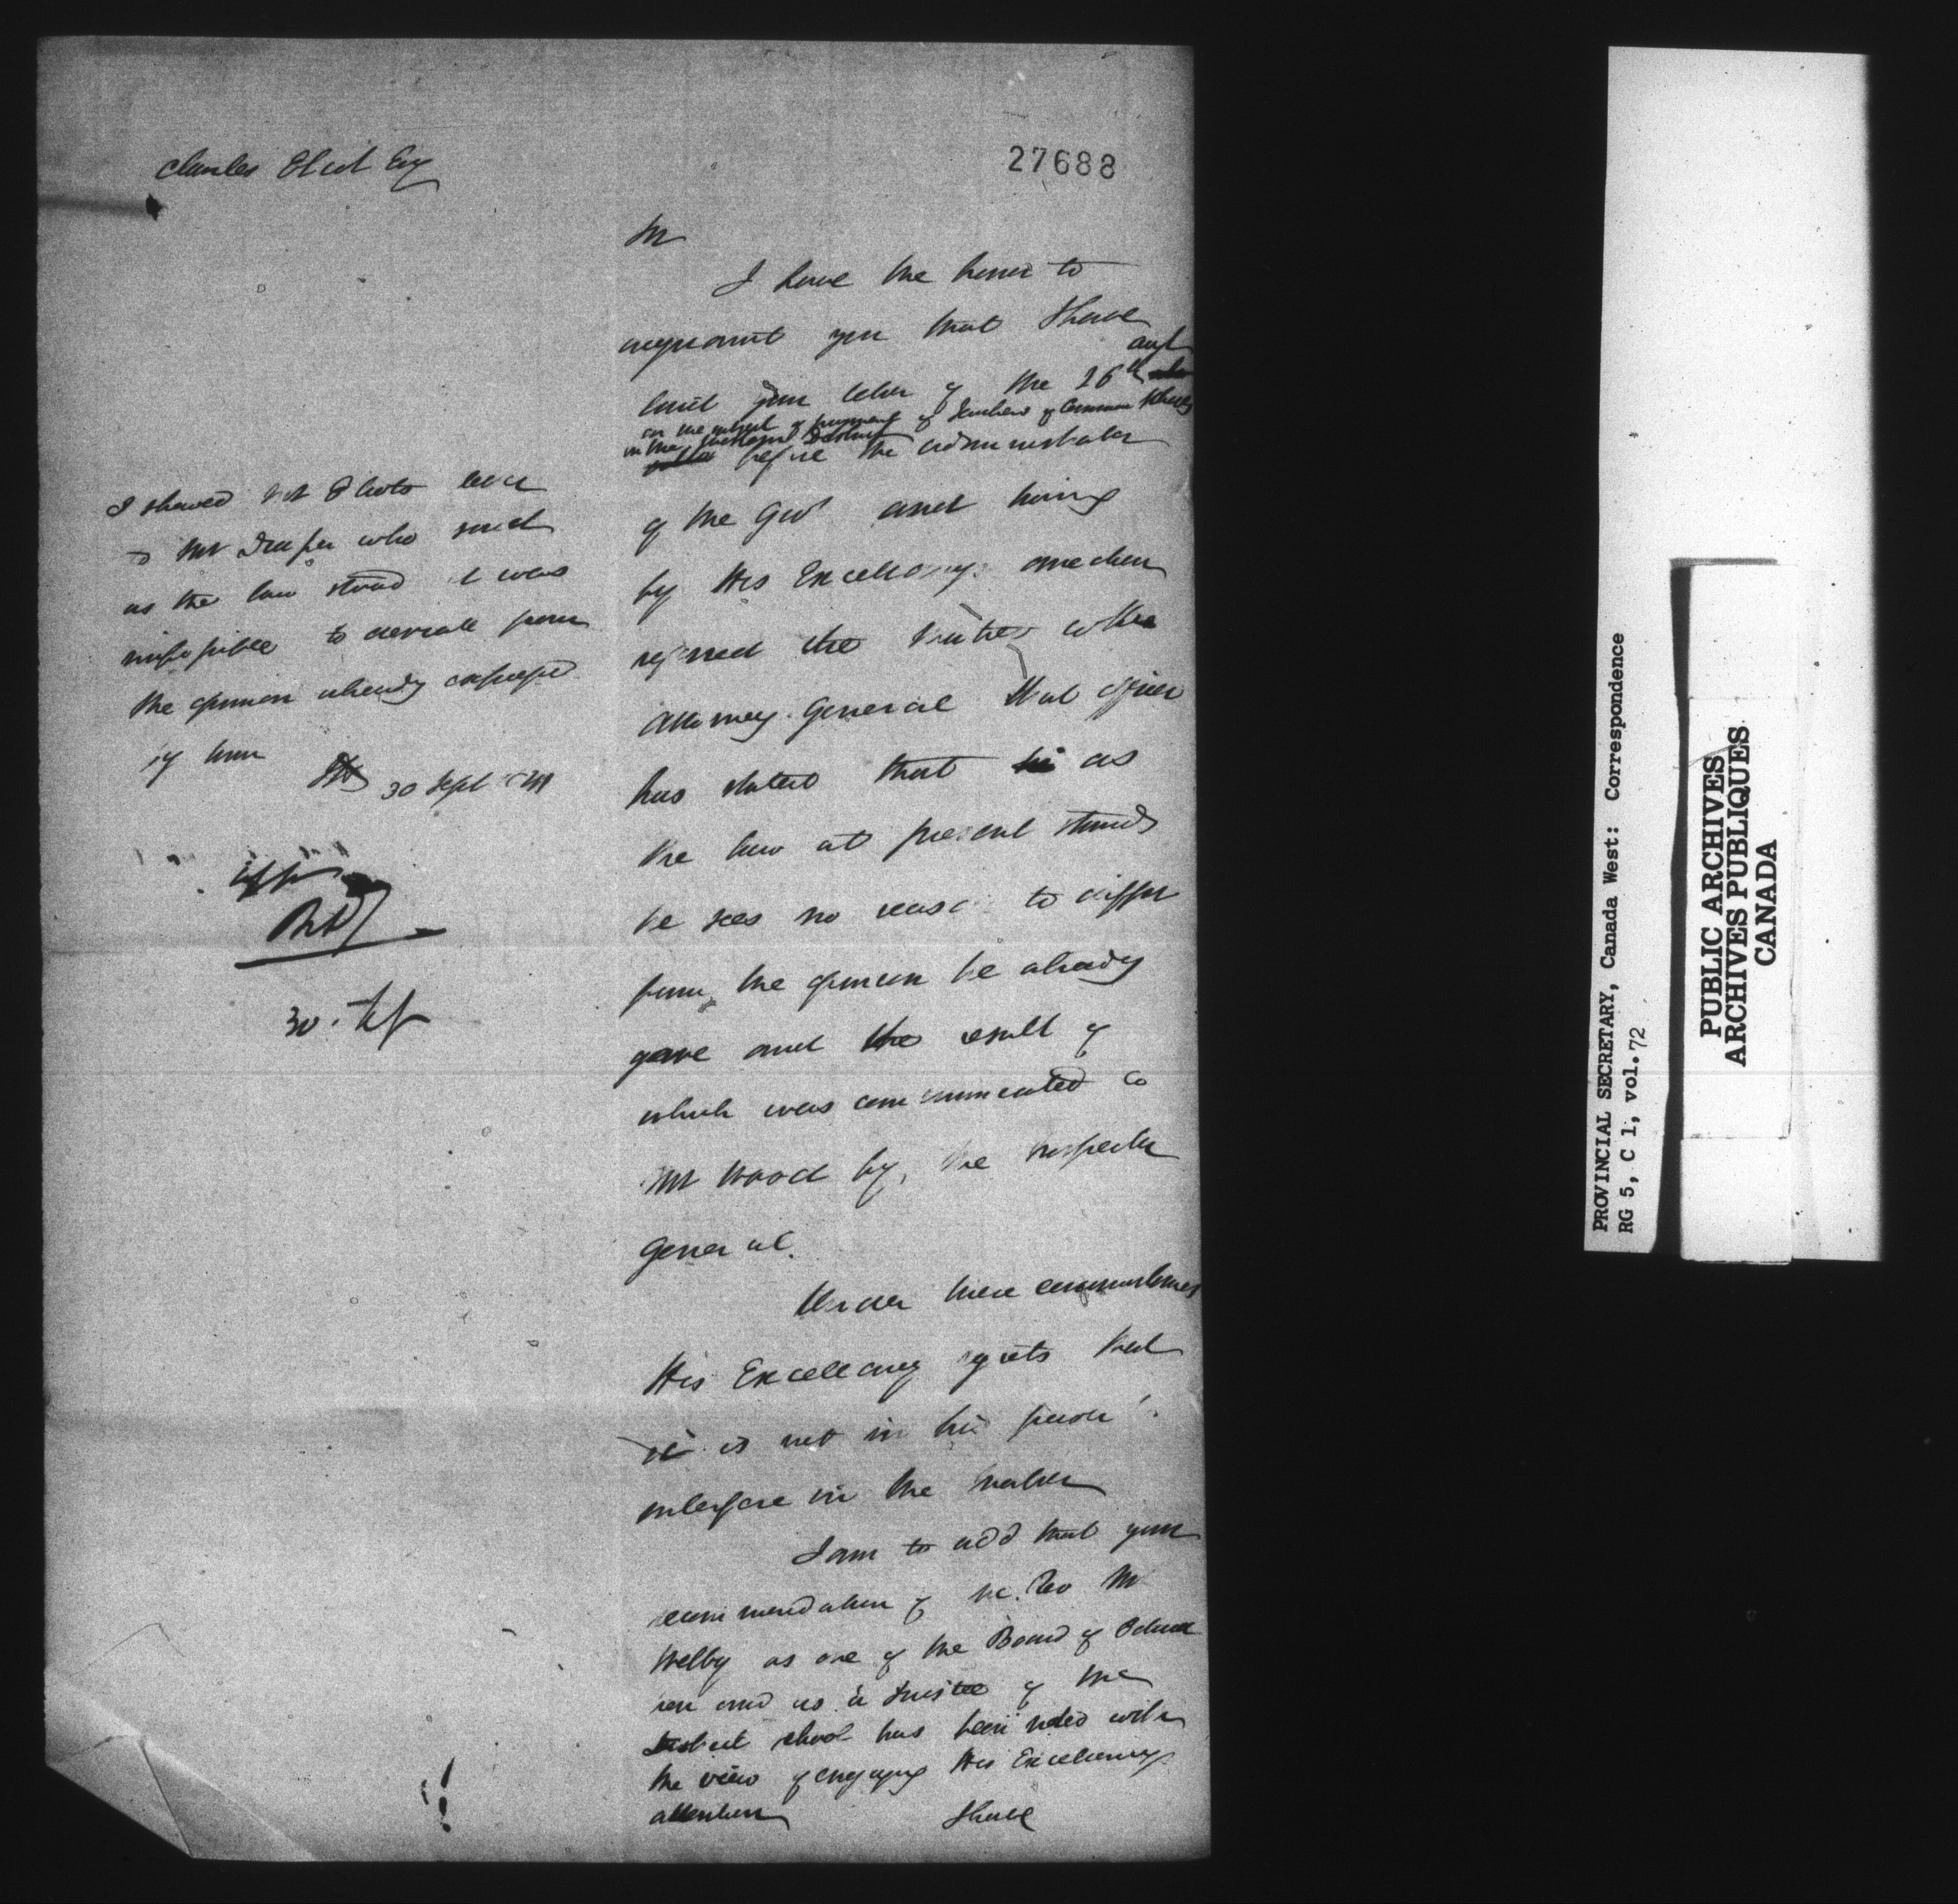 Charles Eliot Esq
27688
Sir
I have the honor to
acquaint you that I have
laid your letter of the 26th augt
on the subject of payment of Teachers of Common Schools
in the Western District
before the administrator
of the Govt and having
by His Excellency's
referred the matter to the
Attorney General that officer
has stated that as
the law at present stands
he sees no reason to differ
from the opinion he already
gave and the result of
which was communicated to
Mr Wood by the Inspector
General.
Under these circumstances
His Excellency regrets that
it is not in his power to
interfere in the matter
I am to add that your
recommendation of the Rev Mr
Welby as one of the Board of Educa
tion and as a trustee of the
District school has been noted with
the view of engaging His Excellency's
attention I have
I showed Mr Eliots letter
to Mr Draper who said
as the law stood it was
impossible to deviate from
the opinion already expressed
by him
30 Sept 1841
30. Sep
PROVINCIAL SECRETARY, Canada West: Correspondence
RG 5, C 1, vol. 72
PUBLIC ARCHIVES
ARCHIVES PUBLIQUES
CANADA